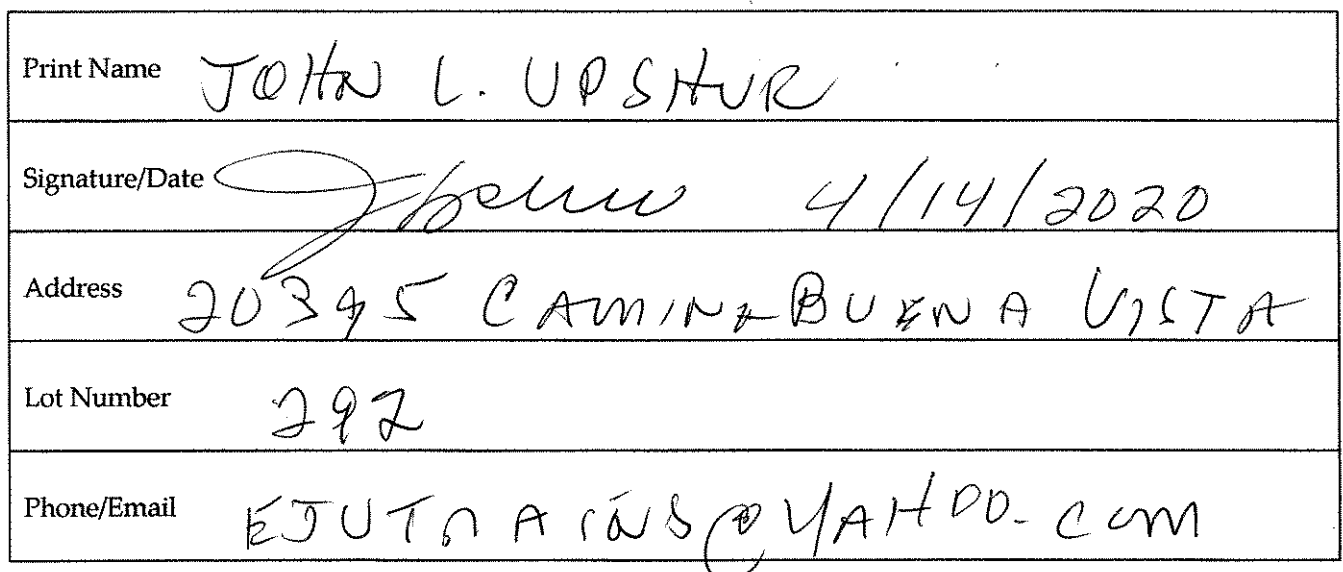 Print Name JOHN L. UPSHUR
Signature/Date 4/14/2020
Address 20395 CAMINO BUENA VISTA
Lot Number 292
Phone/Email EJUTRAINS@YAHOO.COM